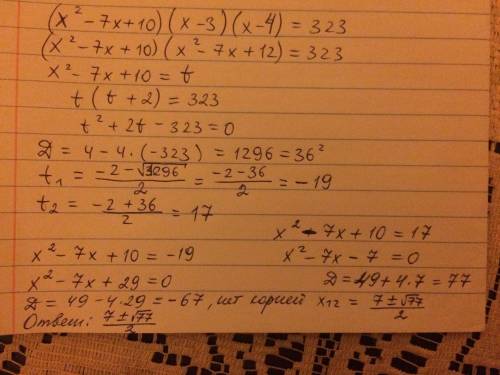 (x² - 7x + 10) (x - 3) (x - 4) = 323
(x² - 7x + 10) (x² - 7x + 12) = 323
x² - 7x + 10 = t
t (t + 2) = 323
t² + 2t - 323 = 0
D = 4 - 4 · (-323) = 1296 = 36²
t₁ = (-2 - √1296)/2 = (-2 - 36)/2 = -19
t₂ = (-2 + 36)/2 = 17
x² - 7x + 10 = 17
x² - 7x + 10 = -19
x² - 7x - 7 = 0
x² - 7x + 29 = 0
D = 49 + 4 · 7 = 77
D = 49 - 4 · 29 = -67, нет корней
x₁₂ = (7 ± √77)/2
Ответ: (7 ± √77)/2